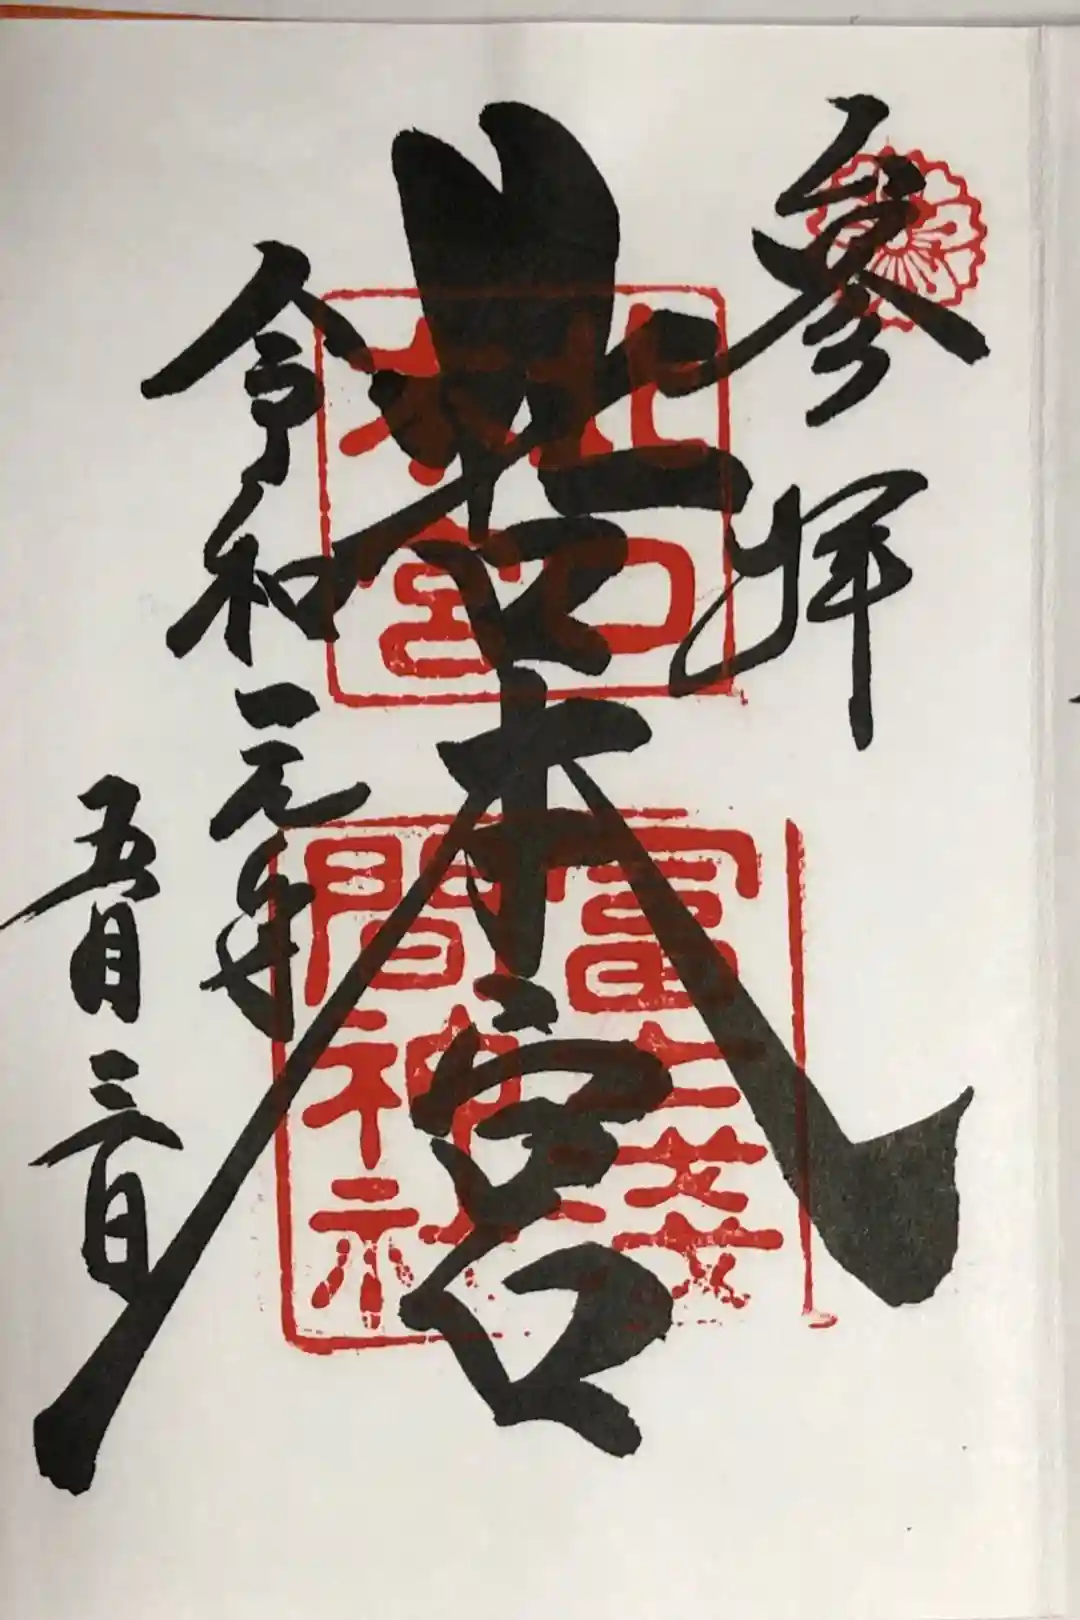 参拝
北口本宮
令和元年
五月三日
北口
本宮
富士淺
間神社